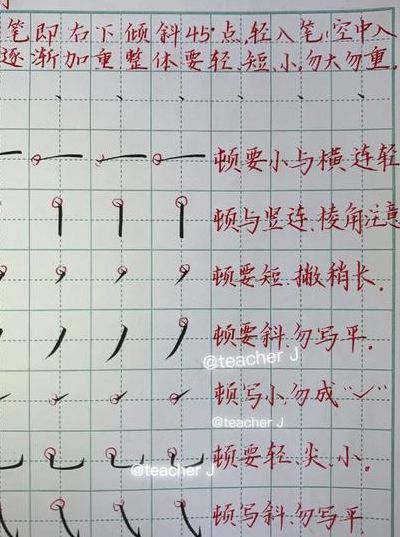 笔即右下倾斜45°点,轻入笔(空中入
逐渐加重整体要轻、短、小,勿大勿重.
顿要小与横、连轻
顿与竖连、棱角注意
顿要短、撇稍长.
顿要斜、勿写平.
@teacher J
顿写小勿成“✓”
@teacher J
顿要轻、尖、小。
@teacher J
顿写斜、勿写平